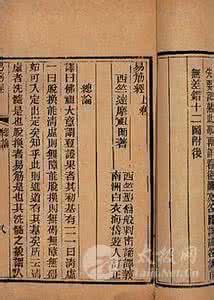 無差錯十二圖附後
易筋經上卷
西竺達摩祖師著
西竺般剌密諦譯義
南洲白衣海岱遊人訂正
總論
譯曰佛祖大意謂登證果者其初基有二一曰清虛
一曰脫換能清虛則無障能脫換則無礙無
可入定出定矣知乎此則進道有其基矣所云清
虛者洗髓是也脫換者易筋是也其洗髓之說謂人
易筋經
總論
太极网